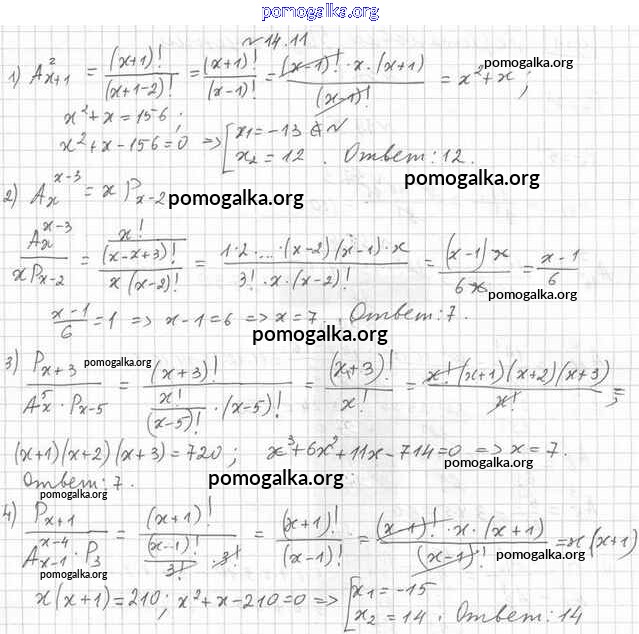 pomogalka.org
№14.11
1) A²ₓ₊₁ = (x+1)!/(x+1-2)! = (x+1)!/(x-1)! = (x-1)!·x·(x+1)/(x-1)! = x²+x;
pomogalka.org
x²+x=156;
x²+x-156=0 => [x₁=-13 ∉ N
x₂=12. Ответ: 12.
pomogalka.org
2) Aₓ^(x-3) = x Pₓ₋₂ pomogalka.org
Aₓ^(x-3)/(x Pₓ₋₂) = (x!/(x-x+3)!)/(x(x-2)!) = 1·2·...·(x-2)(x-1)·x/(3!·x·(x-2)!) = (x-1)x/(6x) = (x-1)/6
pomogalka.org
(x-1)/6 = 1 => x-1=6 => x=7. Ответ: 7.
pomogalka.org
3) Pₓ₊₃/(A⁵ₓ·Pₓ₋₅) = (x+3)!/(x!/(x-5)!·(x-5)!) = (x+3)!/x! = x!(x+1)(x+2)(x+3)/x! =;
pomogalka.org
(x+1)(x+2)(x+3)=720; x³+6x²+11x-714=0 => x=7.
pomogalka.org
Ответ: 7.
pomogalka.org
pomogalka.org
4) Pₓ₊₁/(Aₓ₋₁^(x-4)·P₃) = (x+1)!/((x-1)!/3!·3!) = (x+1)!/(x-1)! = (x-1)!·x·(x+1)/(x-1)! = x(x+1)
pomogalka.org
pomogalka.org
x(x+1)=210; x²+x-210=0 => [x₁=-15
x₂=14. Ответ: 14